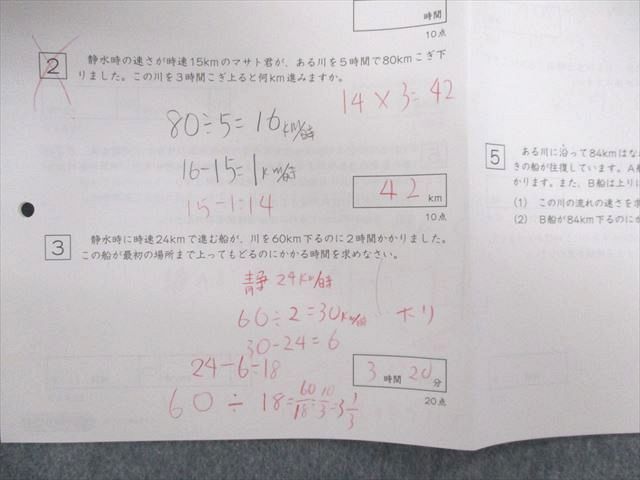 時間
10点
2 静水時の速さが時速15kmのマサト君が、ある川を5時間で80kmこぎ下
りました。この川を3時間こぎ上ると何km進みますか。
14×3=42
80÷5=16km/時
16-15=1km/時
15-1=14
42 km
10点
3 静水時に時速24kmで進む船が、川を60km下るのに2時間かかりました。
この船が最初の場所まで上ってもどるのにかかる時間を求めなさい。
静 24km/時
60÷2=30km/時
30-24=6
24-6=18
60÷18=60/18=10/3=3 1/3
3 時間 20 分
20点
5 ある川に沿って84kmはな
きの船が往復しています。A船
かります。また、B船は上りに
(1) この川の流れの速さを求
(2) B船が84km下るのにか